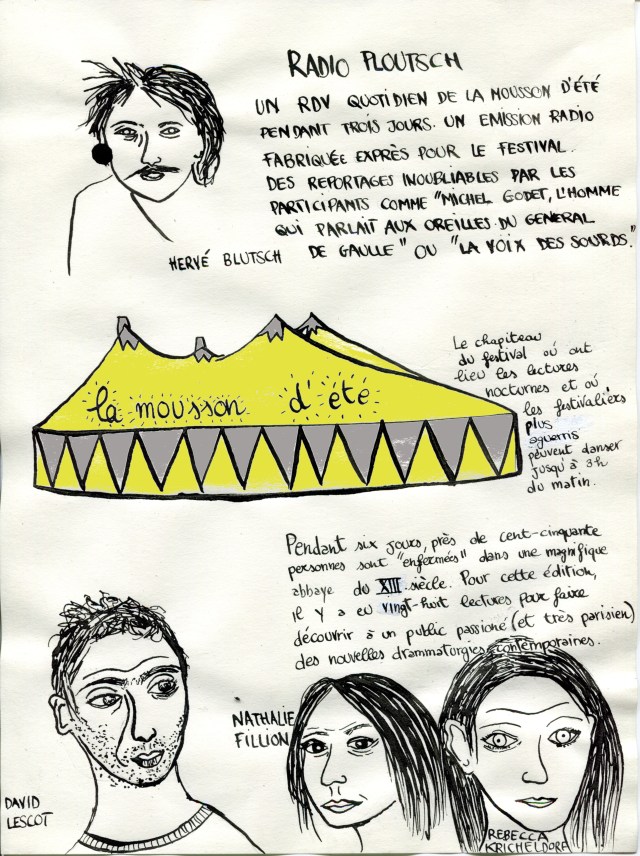 RADIO PLOUTSCH
UN RDV QUOTIDIEN DE LA MOUSSON D'ÉTÉ
PENDANT TROIS JOURS. UN EMISSION RADIO
FABRIQUÉE EXPRÈS POUR LE FESTIVAL.
DES REPORTAGES INOUBLIABLES PAR LES
PARTICIPANTS COMME "MICHEL GODET, L'HOMME
QUI PARLAIT AUX OREILLES DU GENERAL
DE GAULLE" OU "LA VOIX DES SOURDS."
HERVÉ BLUTSCH
la mousson d'été
Le chapiteau
du festival où ont
lieu les lectures
nocturnes et où
les festivaliers
plus
aguerris
peuvent danser
jusqu'à 3h
du matin.
Pendant six jours, près de cent-cinquante
personnes sont "enfermées" dans une magnifique
abbaye du XIII siècle. Pour cette édition,
il y a eu vingt-huit lectures pour faire
découvrir à un public passioné (et très parisien)
des nouvelles drammaturgies contemporaines.
DAVID
LESCOT
NATHALIE
FILLION
REBECCA
KRICHELDORF